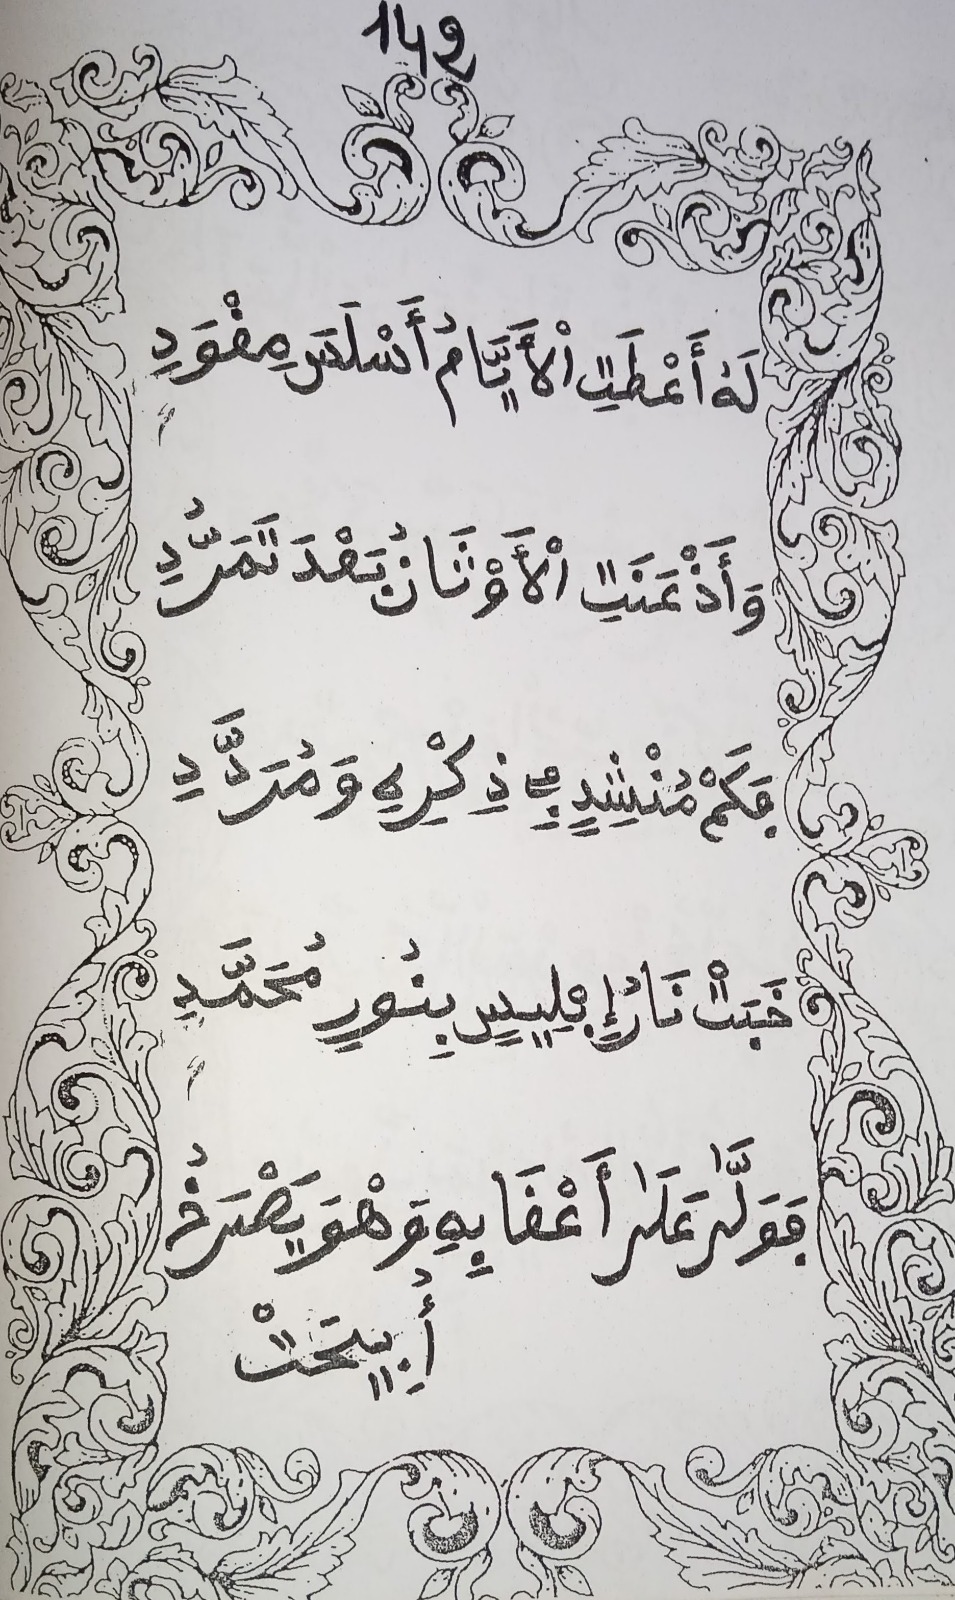 142
لَهُ أَعْطَتِ اْلأَيَّامُ أَسْلَسَ مِقْوَدِ
وَأَذْعَنَتِ اْلأَوْثَانُ بَعْدَ تَمَرُّدِ
فَكَمْ مُنْشِدٍ فِي ذِكْرِهِ وَمُرَدِّدِ
خَبَتْ نَارُ إِبْلِيسٍ بِنُورِ مُحَمَّدِ
فَوَلَّى عَلَى أَعْقَابِهِ وَهْوَ يَصْرَخُ
أُبِيحَتْ